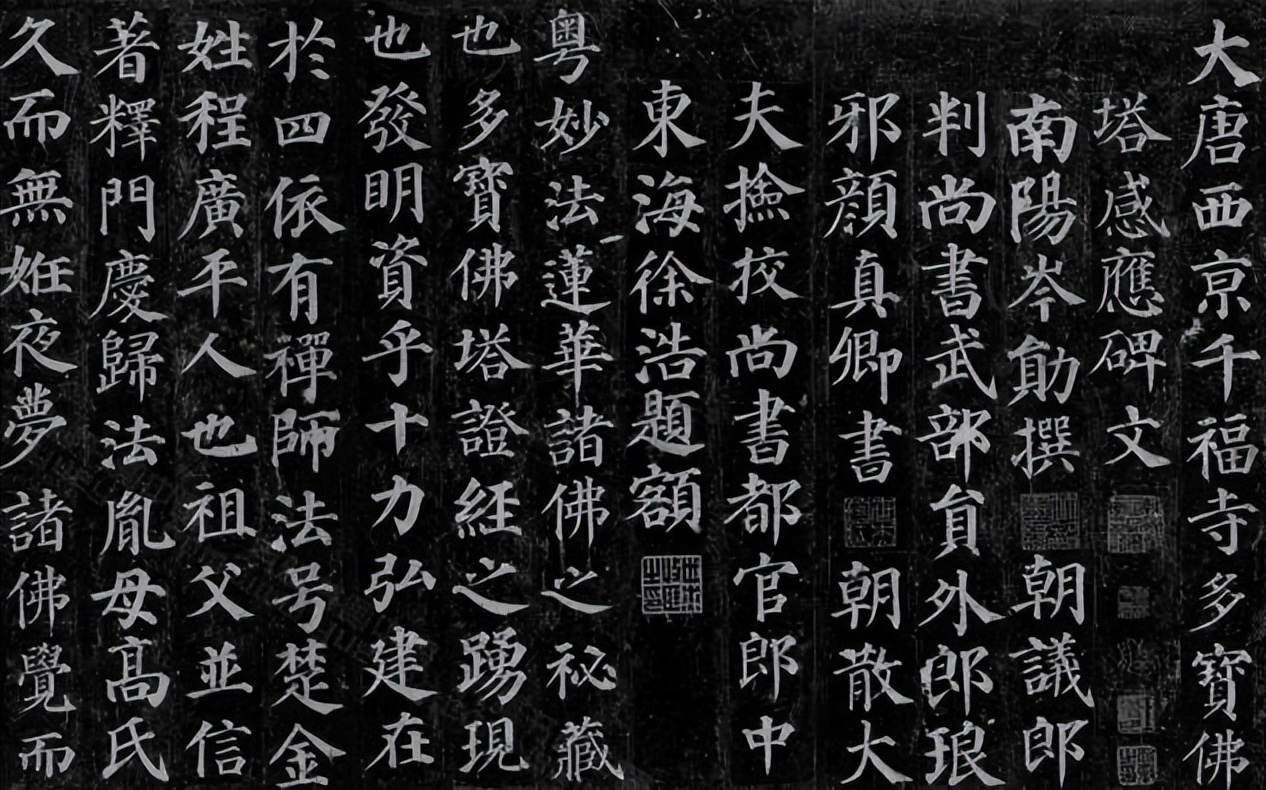 大唐西京千福寺多寶佛
塔感應碑文
南陽岑勛撰 朝議郎
判尚書武部貟外郎琅
邪顏真卿書 朝散大
夫撿挍尚書都官郎中
東海徐浩題額
粤妙法蓮華諸佛之秘藏
也多寶佛塔證經之踴現
也發明資乎十力弘建在
於四依有禪師法号楚金
姓程廣平人也祖父並信
著釋門慶歸法胤母髙氏
久而無姙夜夢諸佛覺而